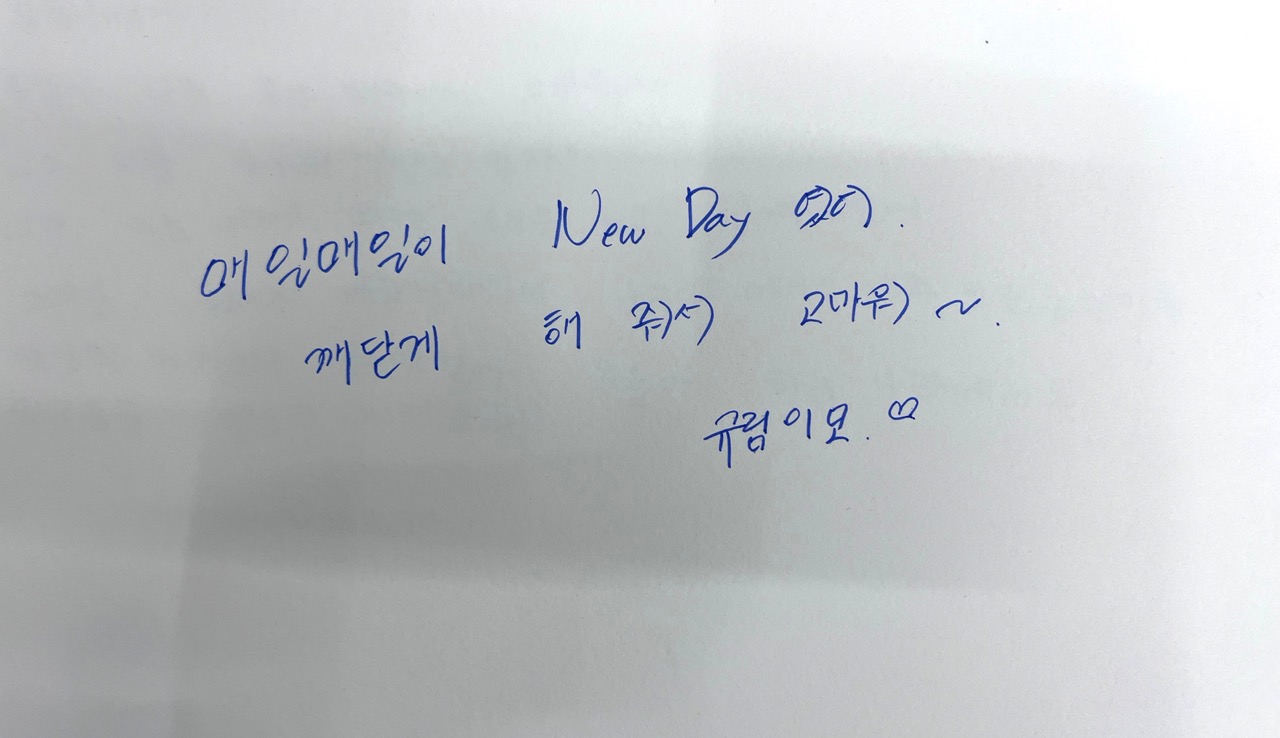 매일매일이 New Day 였어.
깨닫게 해 줘서 고마워~.
규림이모. ♡